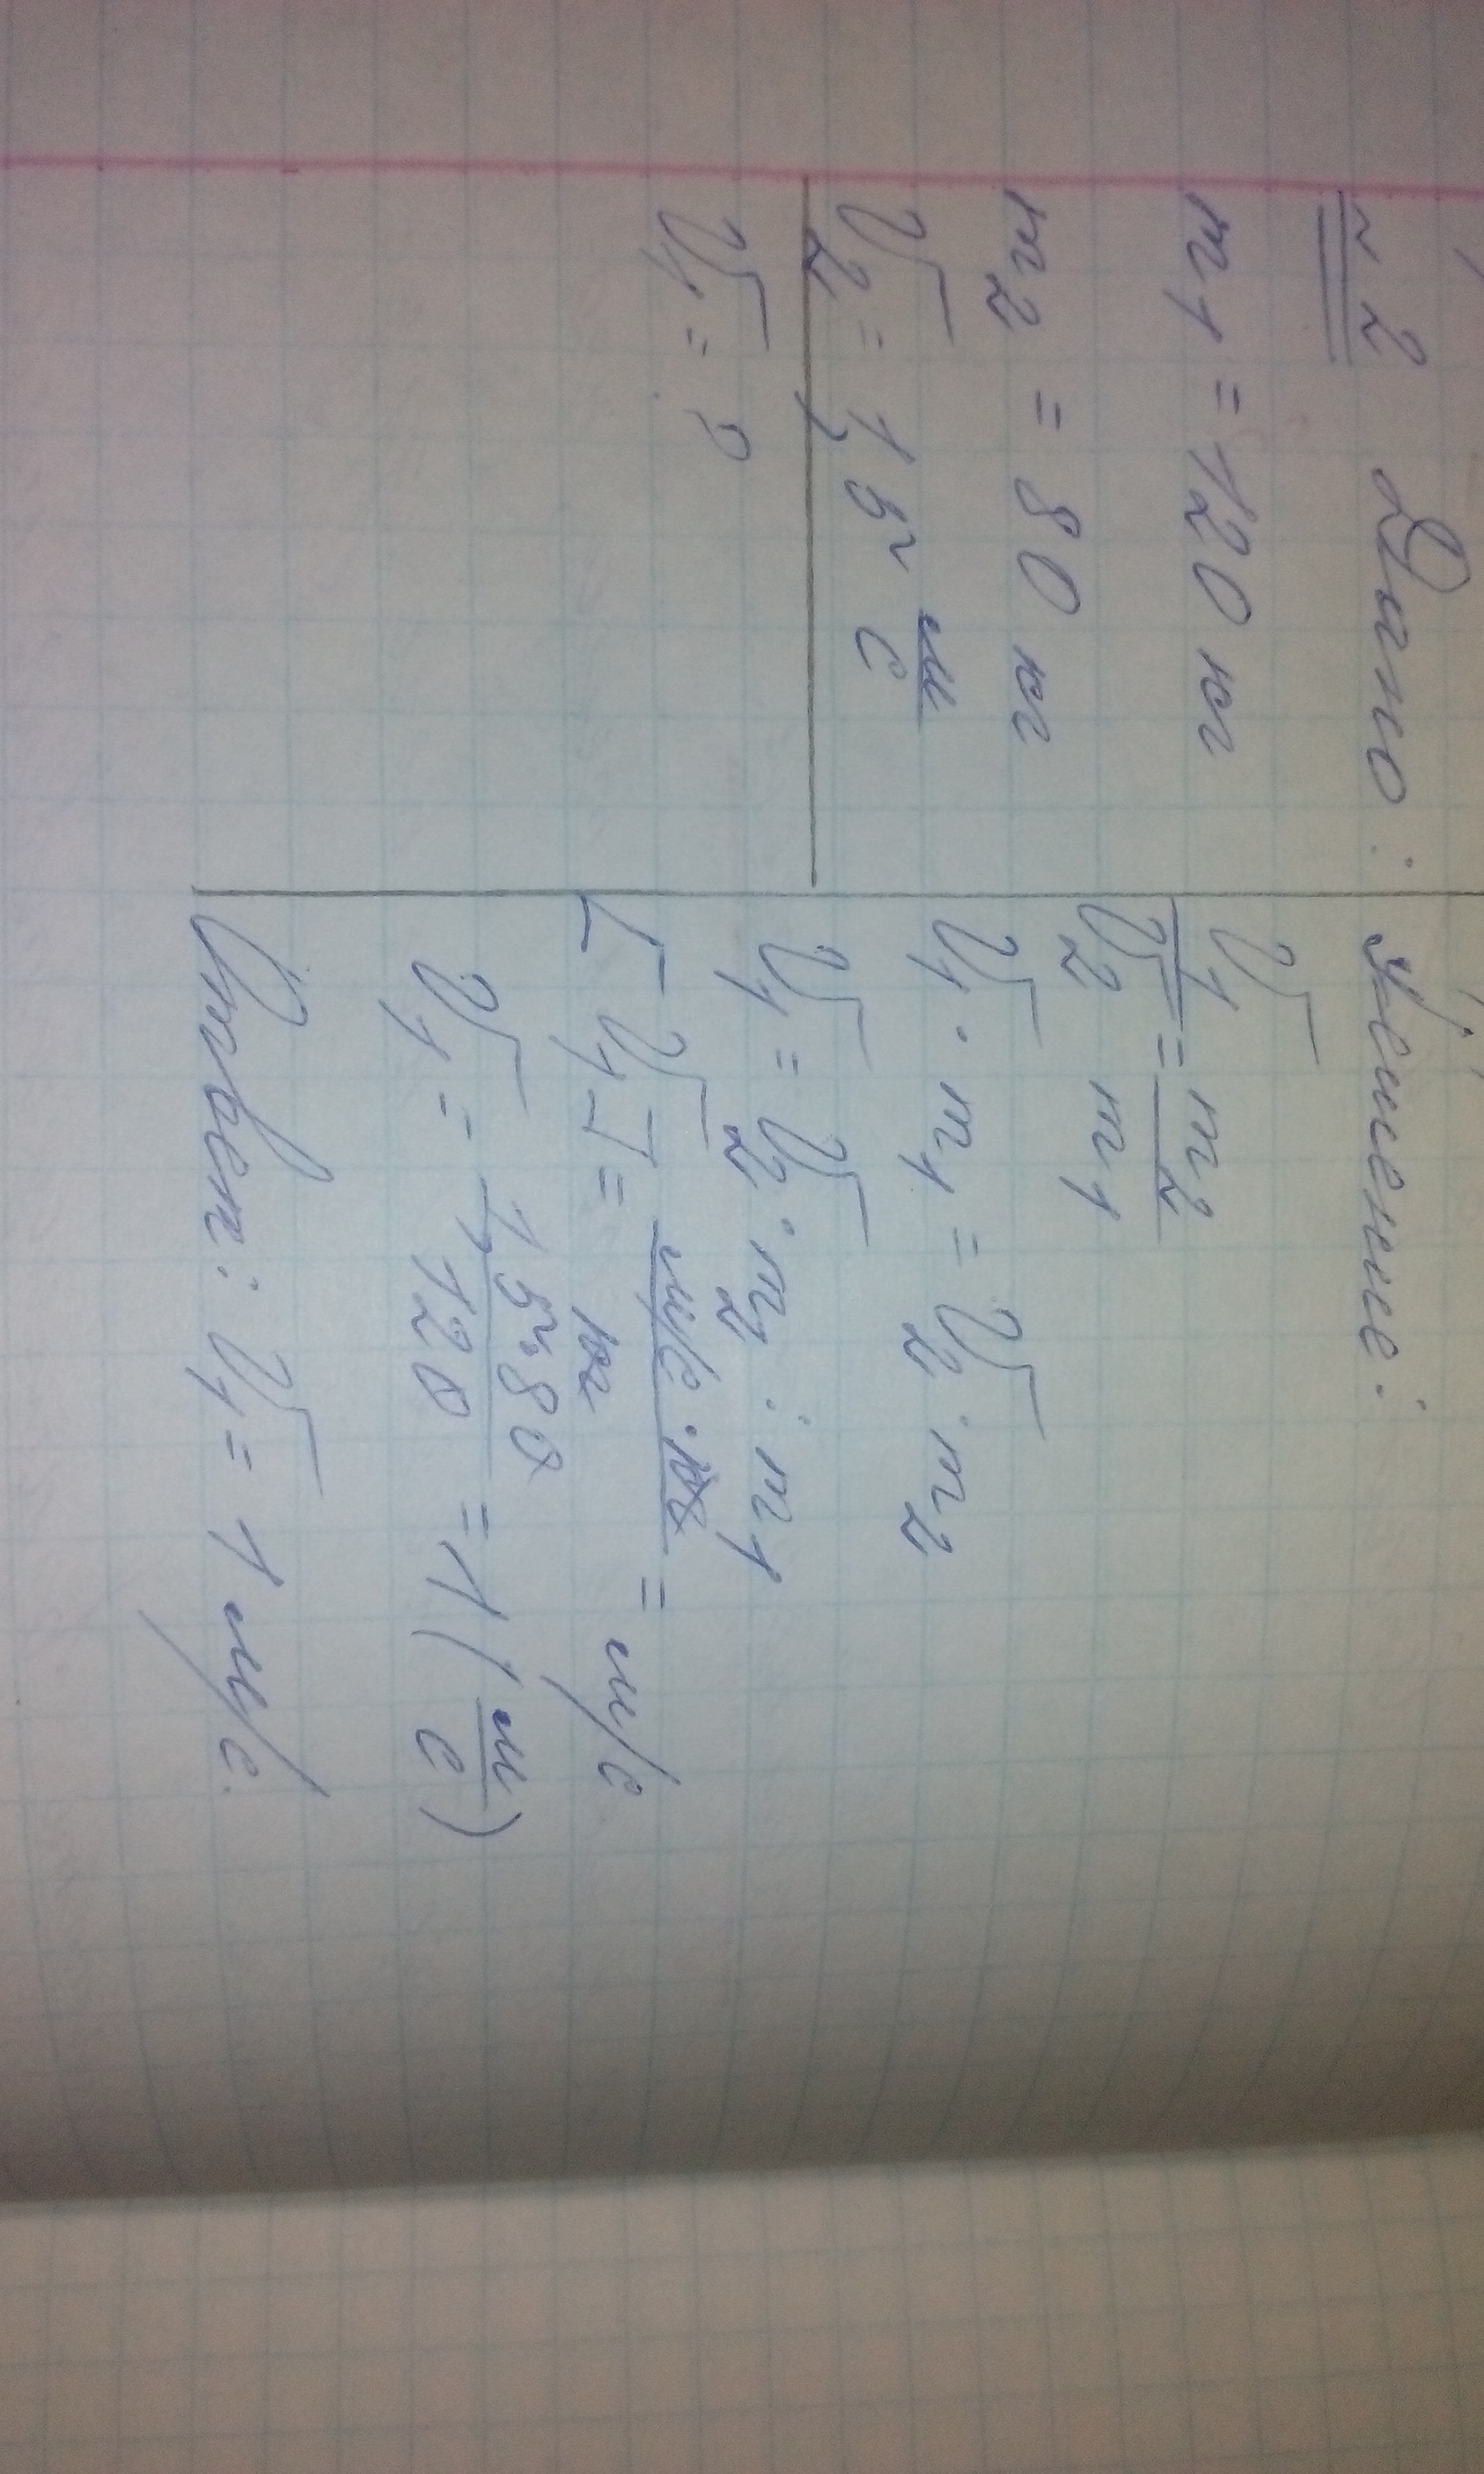 №2 Дано: Решение:
m₁ = 120 кг
m₂ = 80 кг
V₂ = 1,5 м/с
V₁ = ?
V₁/V₂ = m₂/m₁
V₁ · m₁ = V₂ · m₂
V₁ = V₂ · m₂ : m₁
[V₁] = м/с · кг / кг = м/с
V₁ = 1,5 · 80 / 120 = 1 (м/с)
Ответ: V₁ = 1 м/с.